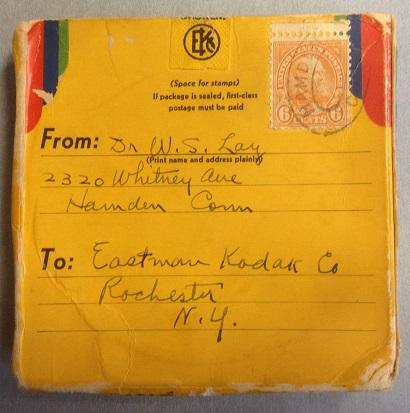 EKC
(Space for stamps)
If package is sealed, first-class
postage must be paid
UNITED STATES POSTAGE
6 CENTS 6
HAMD
From: Dr W. S. Lay
(Print name and address plainly)
2320 Whitney Ave
Hamden Conn
To: Eastman Kodak Co
Rochester
N.Y.